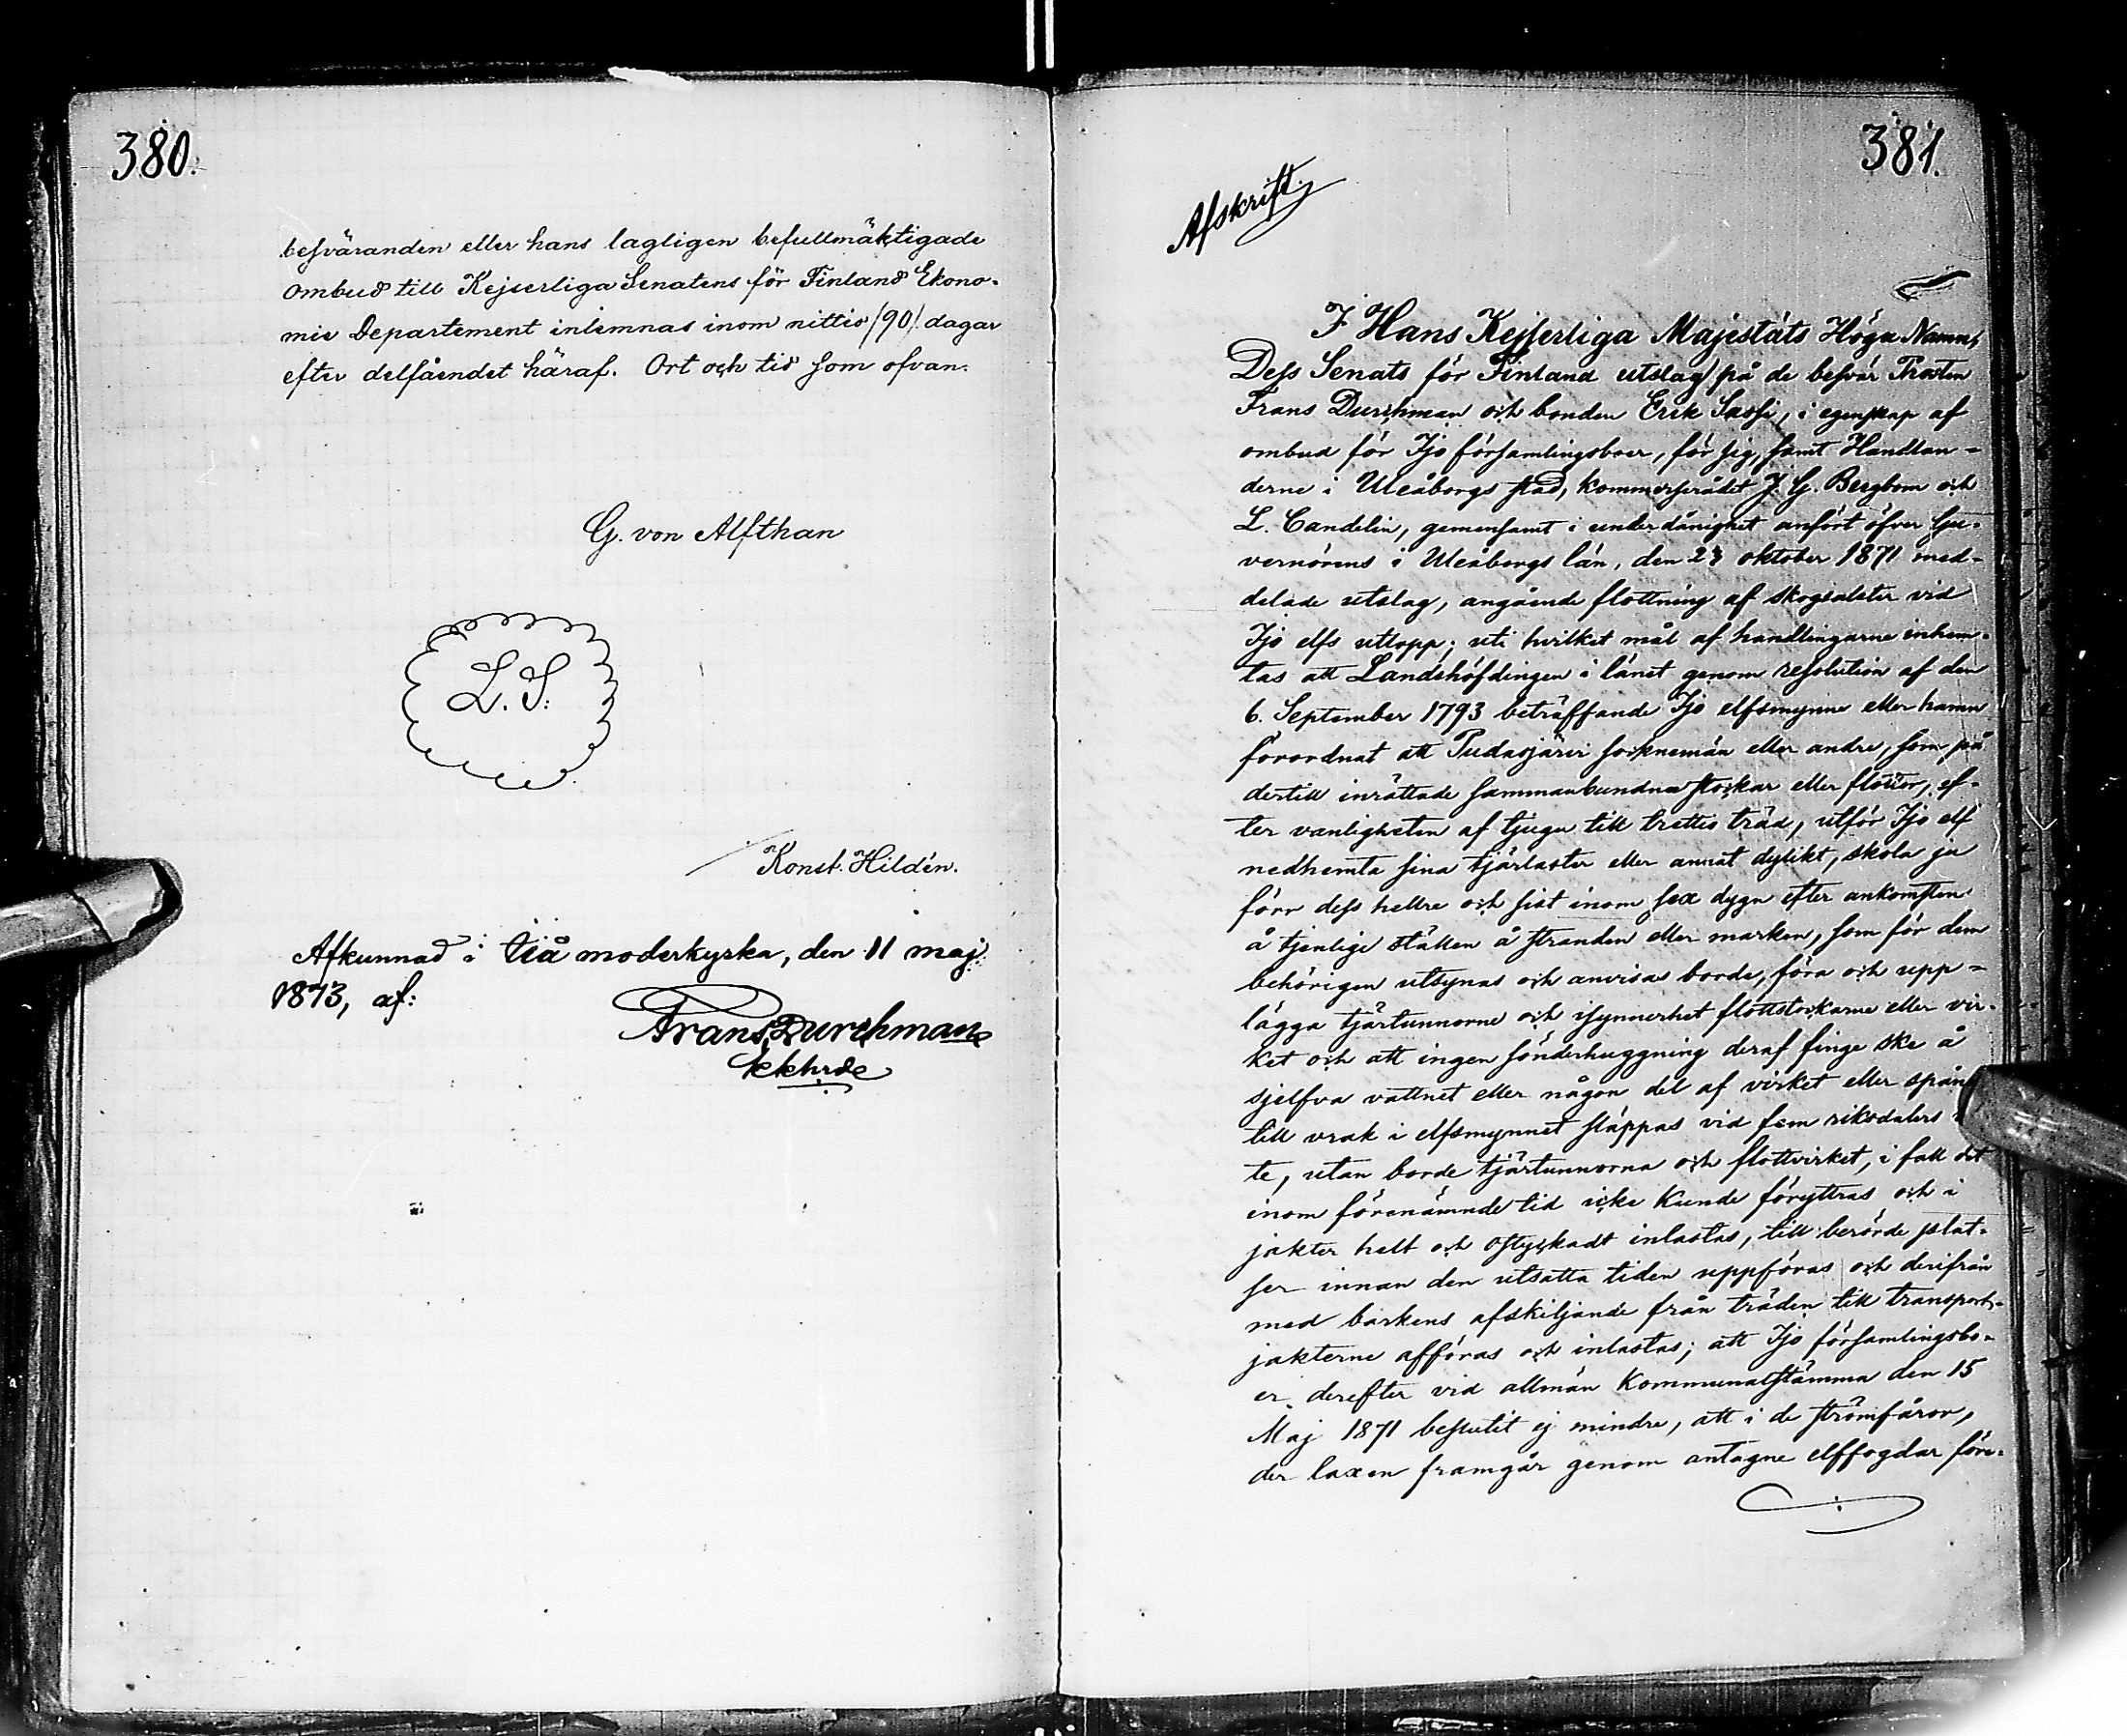 380.
besväranden eller hans lagligen befullmäktigade
ombud till Kejserliga Senatens för Finland Ekono-
mie Departement inlemnas inom nittio /90/ dagar
efter delfåendet häraf. Ort och tid som ofvan.
G. von Alfthan
L. S.
Konst. Hildén.
Afkunnad i Iiå moderkyrka, den 11 maj
1873, af:
Frans Durchman
kkhrde
381.
Afskrift.
I Hans Kejserliga Majestäts Höga Namn,
Dess Senats för Finland utslag på de besvär Prosten
Frans Durchman och bonden Erik Sassi, i egenskap af
ombud för Ijo församlingsboer, för sig, samt Handlan-
derne i Uleåborgs stad, kommerserådet J. G. Bergbom och
L. Candelin, gemensamt i underdånighet anfört öfver Gu-
vernörens i Uleåborgs län, den 23 oktober 1871 med-
delade utslag, angående flottning af skogsalster vid
Ijo elfs utlopp; uti hvilket mål af handlingarne inhem-
tas att Landshöfdingen i länet genom resolution af den
6. September 1793 beträffande Ijo elfsmynne eller hamn
förordnat att Pudasjärvi socknemän eller andre, som på
dertill inrättade sammanbundna stockar eller flottor, ef-
ter vanligheten af tjugu till trettio träd, utför Ijo elf
nedhemta sina tjärlaster eller annat dylikt, skola ju
förr dess hellre och sist inom sex dygn efter ankomsten
å tjenlige ställen å stranden eller marken, som för dem
behörigen utsynas och anvisas borde, föra och upp-
lägga tjärtunnorne och isynnerhet flottstockarne eller vir-
ket och att ingen sönderhuggning deraf finge ske å
sjelfva vattnet eller någon del af virket eller spån
till vrak i elfsmynnet släppas vid fem riksdalers
te, utan borde tjärtunnorna och flottvirket, i fall det
inom förenämnde tid icke kunde föryttras och i
jakter helt och ostyckadt inlastas, till berörde plat-
ser innan den utsatta tiden uppföras och derifrån
med barkens afskiljande från träden till transport-
jakterne afföras och inlastas; att Ijo församlingsbo-
er derefter vid allmän Kommunalstämma den 15
Maj 1871 beslutit ej mindre, att i de strömfåror,
der laxen framgår genom antagne elffogdar före-